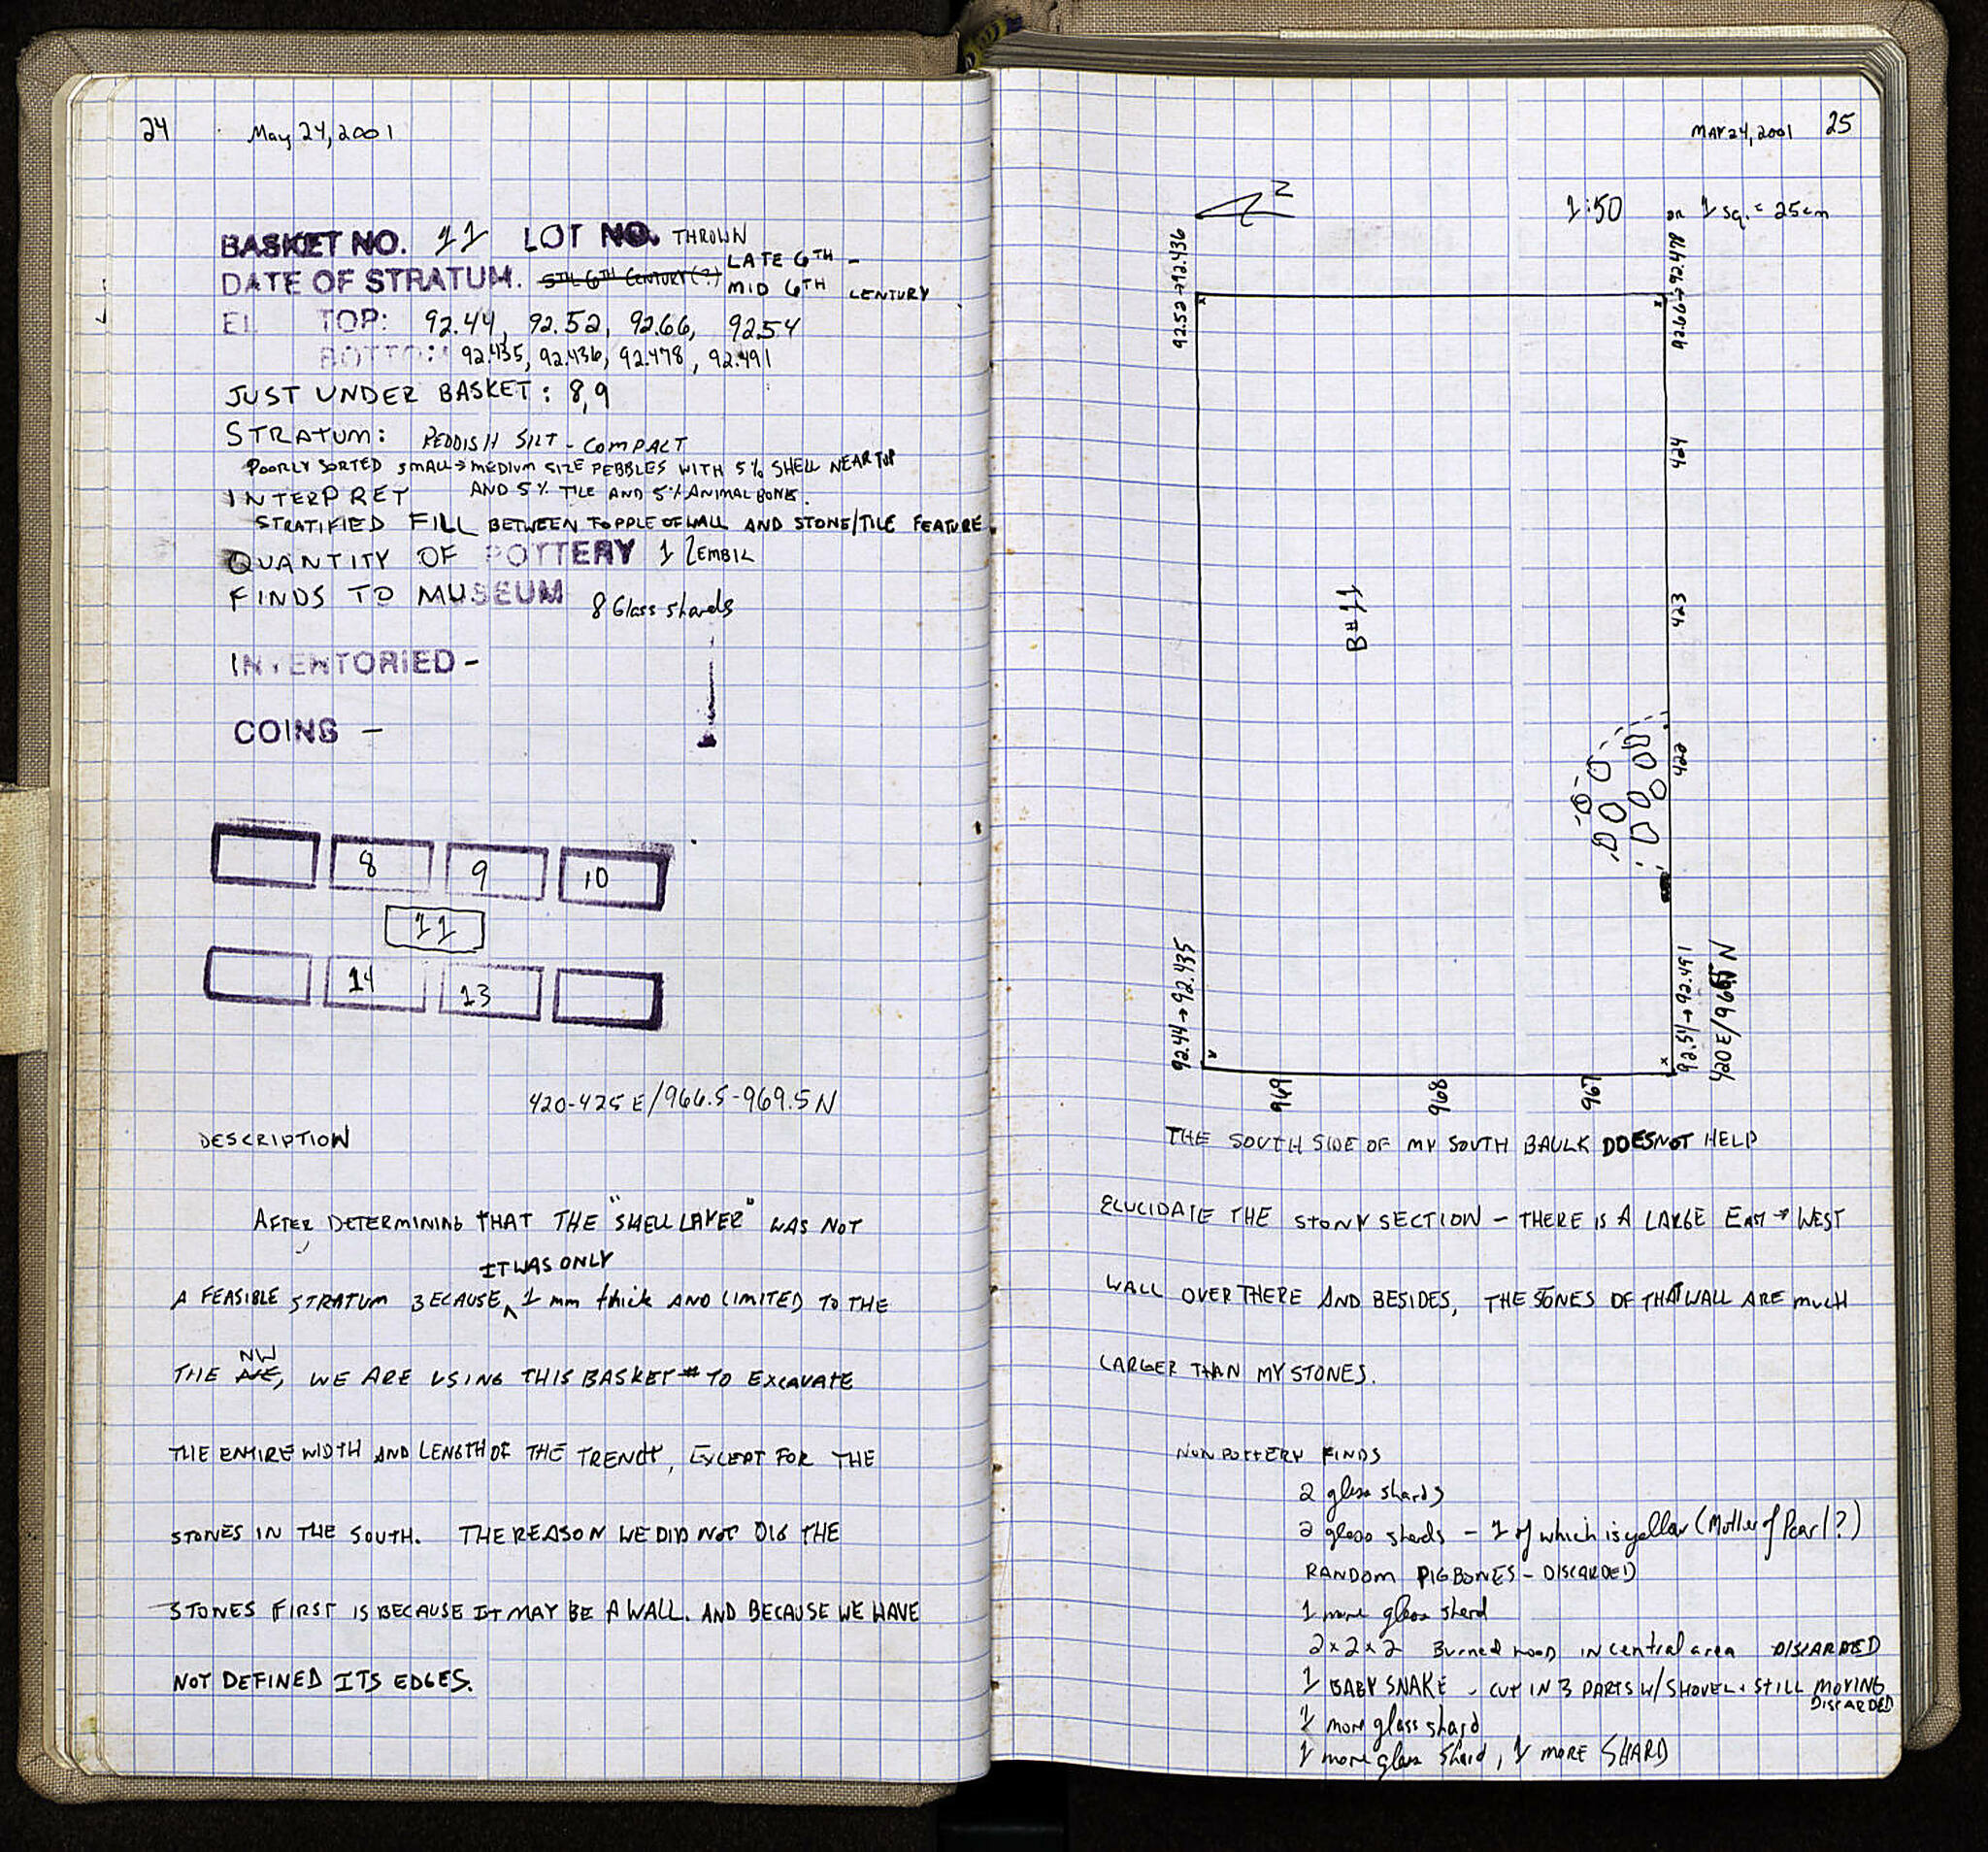 24 May 24, 2001
BASKET NO. 11 LOT NO. THROWN
DATE OF STRATUM. 5TH 6TH CENTURY (?) LATE 6TH -
MID 6TH CENTURY
EL TOP: 92.44, 92.52, 92.66, 92.54
BOTTO: 92.435, 92.436, 92.478, 92.491
JUST UNDER BASKET: 8,9
STRATUM: REDDISH SILT - COMPACT
POORLY SORTED SMALL → MEDIUM SIZE PEBBLES WITH 5% SHELL NEAR TOP
INTERPRET AND 5% TILE AND 5% ANIMAL BONE.
STRATIFIED FILL BETWEEN TOPPLE OF WALL AND STONE/TILE FEATURE.
QUANTITY OF POTTERY 1 ZEMBIL
FINDS TO MUSEUM 8 Glass shards
INVENTORIED -
COINS -
8 9 10
11
14 13
420-425 E/966.5-969.5 N
DESCRIPTION
AFTER DETERMINING THAT THE "SHELL LAYER" WAS NOT
IT WAS ONLY
A FEASIBLE STRATUM BECAUSE ^ 1 mm thick AND LIMITED TO THE
NW
THE NE, WE ARE USING THIS BASKET # TO EXCAVATE
THE ENTIRE WIDTH AND LENGTH OF THE TRENCH, EXCEPT FOR THE
STONES IN THE SOUTH. THE REASON WE DID NOT DIG THE
STONES FIRST IS BECAUSE IT MAY BE A WALL. AND BECAUSE WE HAVE
NOT DEFINED ITS EDGES.
MAY 24, 2001 25
N
1:50 or 1 sq. = 25cm
92.52 → 92.436
92.478
424
423
B#11
422
92.44 → 92.435
92.54 → 92.491
420E/966.5 N
969 968 967
THE SOUTH SIDE OF MY SOUTH BAULK DOES NOT HELP
ELUCIDATE THE STONY SECTION - THERE IS A LARGE EAST → WEST
WALL OVER THERE AND BESIDES, THE STONES OF THAT WALL ARE MUCH
LARGER THAN MY STONES.
NON POTTERY FINDS
2 glass shards
2 glass sherds - 1 of which is yellow (Mother of Pearl?)
RANDOM PIG BONES - DISCARDED
1 more glass sherd
2 x 2 x 2 Burned wood IN central area DISCARDED
1 BABY SNAKE - CUT IN 3 PARTS W/ SHOVEL. STILL MOVING
DISCARDED
1 more glass shard
1 more glass shard, 1 MORE SHARD